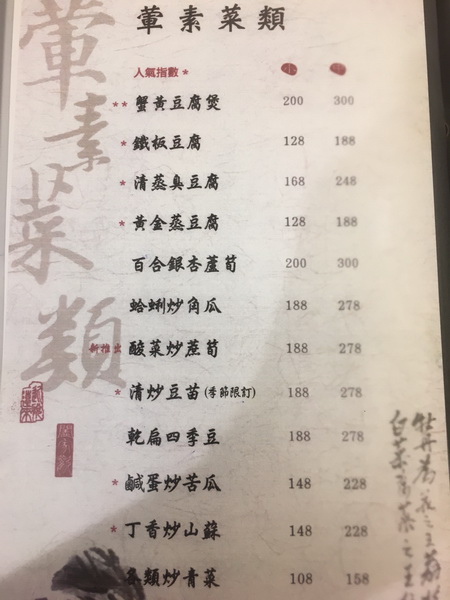 葷素菜類
葷素菜類
人氣指數* 小 中
** 蟹黃豆腐煲 200 300
* 鐵板豆腐 128 188
* 清蒸臭豆腐 168 248
* 黃金蒸豆腐 128 188
百合銀杏蘆筍 200 300
蛤蜊炒角瓜 188 278
新推出 酸菜炒蔗筍 188 278
* 清炒豆苗(季節限訂) 188 278
乾扁四季豆 188 278
* 鹹蛋炒苦瓜 148 228
* 丁香炒山蘇 148 228
各類炒青菜 108 158
牡丹為花之王荔枝
白菜